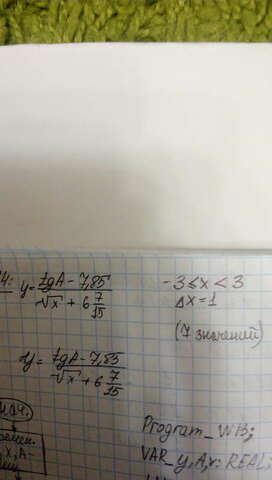 4: y = tgA - 7,85 / √x + 6 7/15
-3 ≤ x < 3
Δx = 1
(7 значений)
y = tgA - 7,85 / √x + 6 7/15
нач.
Program_W13;
VAR_y,A,x: REAL;
x, A-